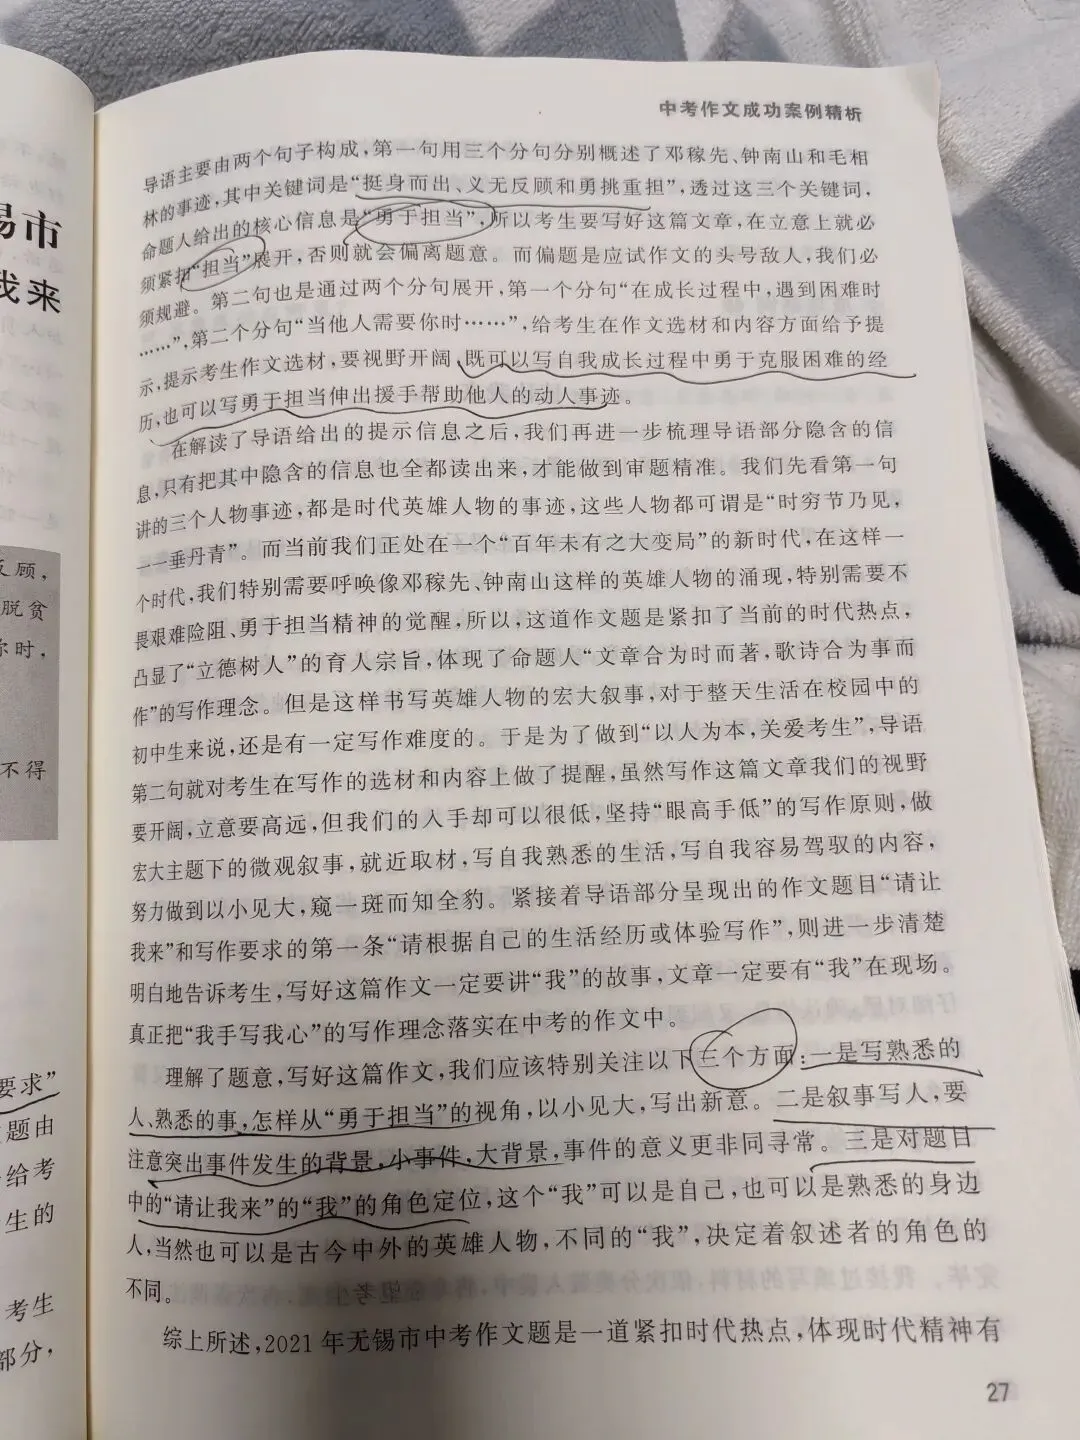 中考作文成功案例精析
导语主要由两个句子构成，第一句用三个分句分别概述了邓稼先、钟南山和毛相
林的事迹，其中关键词是“挺身而出、义无反顾和勇挑重担”，透过这三个关键词，
命题人给出的核心信息是“勇于担当”，所以考生要写好这篇文章，在立意上就必
须紧扣“担当”展开，否则就会偏离题意。而偏题是应试作文的头号敌人，我们必
须规避。第二句也是通过两个分句展开，第一个分句“在成长过程中，遇到困难时
……”，第二个分句“当他人需要你时……”，给考生在作文选材和内容方面给予提
示，提示考生作文选材，要视野开阔，既可以写自我成长过程中勇于克服困难的经
历，也可以写勇于担当伸出援手帮助他人的动人事迹。
在解读了导语给出的提示信息之后，我们再进一步梳理导语部分隐含的信
息，只有把其中隐含的信息也全都读出来，才能做到审题精准。我们先看第一句
讲的三个人物事迹，都是时代英雄人物的事迹，这些人物都可谓是“时穷节乃见，
一一垂丹青”。而当前我们正处在一个“百年未有之大变局”的新时代，在这样一
个时代，我们特别需要呼唤像邓稼先、钟南山这样的英雄人物的涌现，特别需要不
畏艰难险阻、勇于担当精神的觉醒，所以，这道作文题是紧扣了当前的时代热点，
凸显了“立德树人”的育人宗旨，体现了命题人“文章合为时而著，歌诗合为事而
作”的写作理念。但是这样书写英雄人物的宏大叙事，对于整天生活在校园中的
初中生来说，还是有一定写作难度的。于是为了做到“以人为本，关爱考生”，导语
第二句就对考生在写作的选材和内容上做了提醒，虽然写作这篇文章我们的视野
要开阔，立意要高远，但我们的入手却可以很低，坚持“眼高手低”的写作原则，做
宏大主题下的微观叙事，就近取材，写自我熟悉的生活，写自我容易驾驭的内容，
努力做到以小见大，窥一斑而知全豹。紧接着导语部分呈现出的作文题目“请让
我来”和写作要求的第一条“请根据自己的生活经历或体验写作”，则进一步清楚
明白地告诉考生，写好这篇作文一定要讲“我”的故事，文章一定要有“我”在现场。
真正把“我手写我心”的写作理念落实在中考的作文中。
理解了题意，写好这篇作文，我们应该特别关注以下三个方面：一是写熟悉的
人、熟悉的事，怎样从“勇于担当”的视角，以小见大，写出新意。二是叙事写人，要
注意突出事件发生的背景，小事件，大背景，事件的意义更非同寻常。三是对题目
中的“请让我来”的“我”的角色定位，这个“我”可以是自己，也可以是熟悉的身边
人，当然也可以是古今中外的英雄人物，不同的“我”，决定着叙述者的角色的
不同。
综上所述，2021年无锡市中考作文题是一道紧扣时代热点，体现时代精神有
27
锡市
我来
反顾，
脱贫
你时，
不得
要求”
题由
给考
生的
考生
部分，